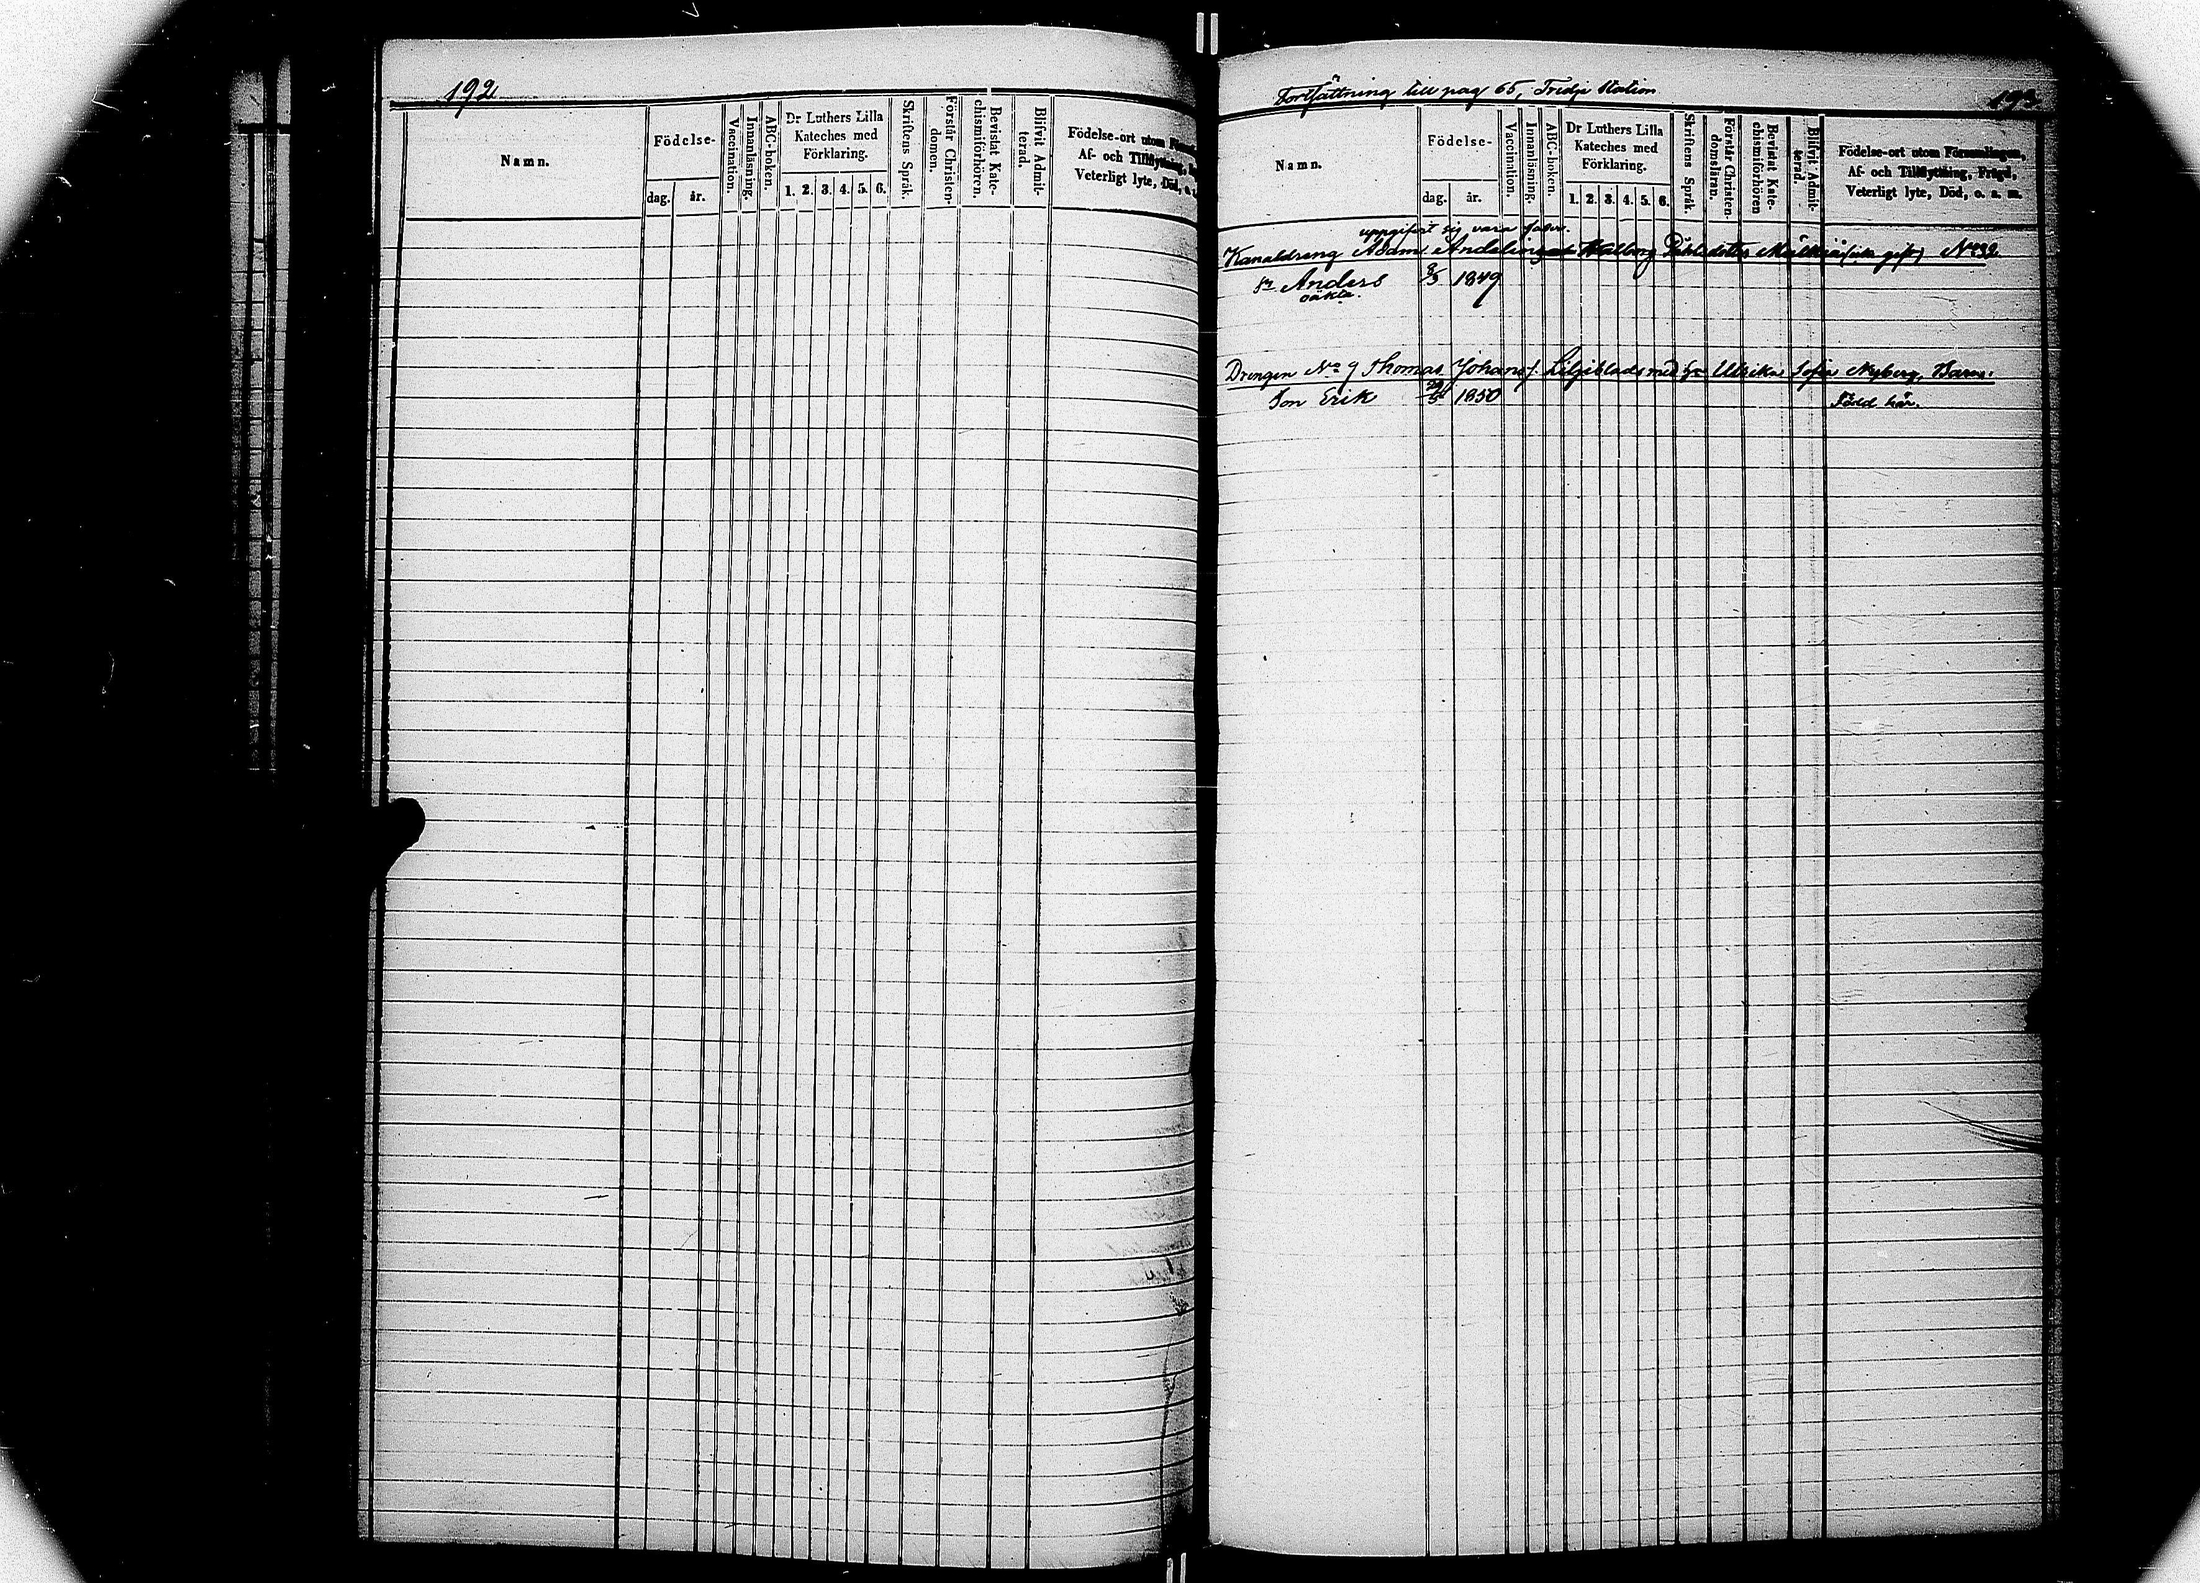 192
Namn.
Födelse-
dag. år.
Vaccination.
Innanläsning.
ABC-boken.
Dr Luthers Lilla
Kateches med
Förklaring.
1. 2. 3. 4. 5. 6.
Skriftens Språk.
Förstår Christen-
domen.
Bevistat Kate-
chismiförhören.
Blifvit Admit-
terad.
Födelse-ort utom
Af- och Tillflyttning,
Veterligt lyte, Död,
Fortsättning till pag 65, Tredje Station
193
Namn.
Födelse-
dag. år.
Vaccination.
Innanläsning.
ABC-boken.
Dr Luthers Lilla
Kateches med
Förklaring.
1. 2. 3. 4. 5. 6.
Skriftens Språk.
Förstår Christen-
domsläran.
Bevistat Kate-
chismiförhören
Blifvit Admit-
terad.
Födelse-ort utom Församlingen,
Af- och Tillflyttning, Frägd,
Veterligt lyte, Död, o. s. m.
uppgifvit sig vara fader.
Kanaldreng Adam Andelin Walborg gift) No 32
Sn Anders 8/5 1849
oäkta.
Drengen No 9 Thomas Johans f. Liljeblads med h. Ulrika Sofia Nyberg, Barn:
Son Erik 1850 Född här.